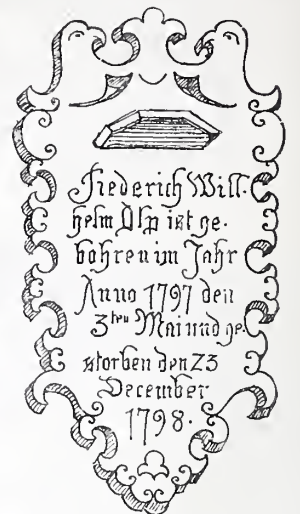 Fiederich Will-
helm ist ge-
bohren im Jahr
Anno 1797 den
3ten Mai und ge-
storben den 23
December
1798.